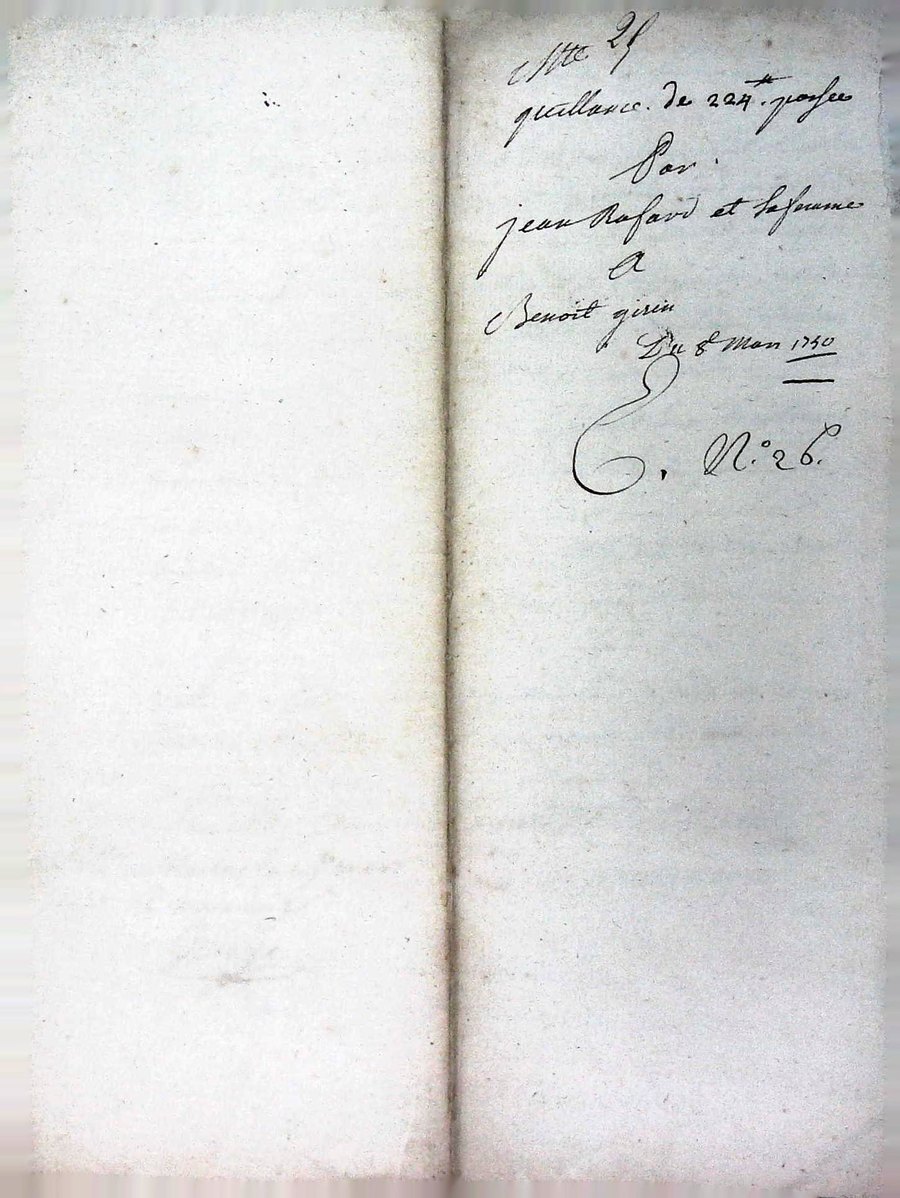 Cotte 25
quittance. de 224#. passee
Par.
jean Rafard et sa femme
A
Benoit girin
Du 8e Mars 1750
N.° 26.